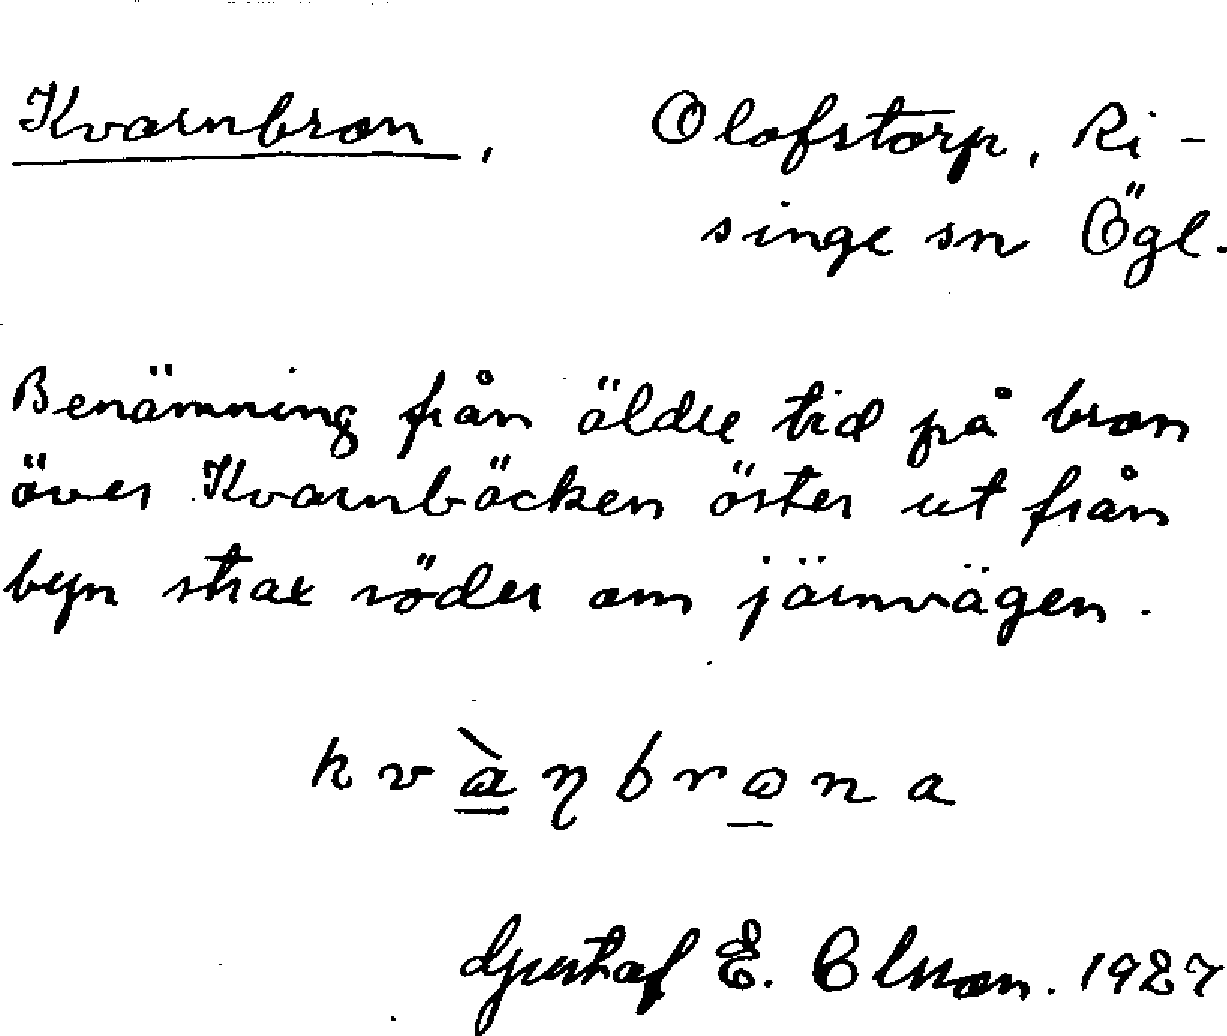 Kvarnbron, Olofstorp, Ri-
singe sn Ögl.
Benämning från äldre tid på bron
över Kvarnbäcken öster ut från
byn strax söder om järnvägen.
Gustaf E. Olsson. 1927